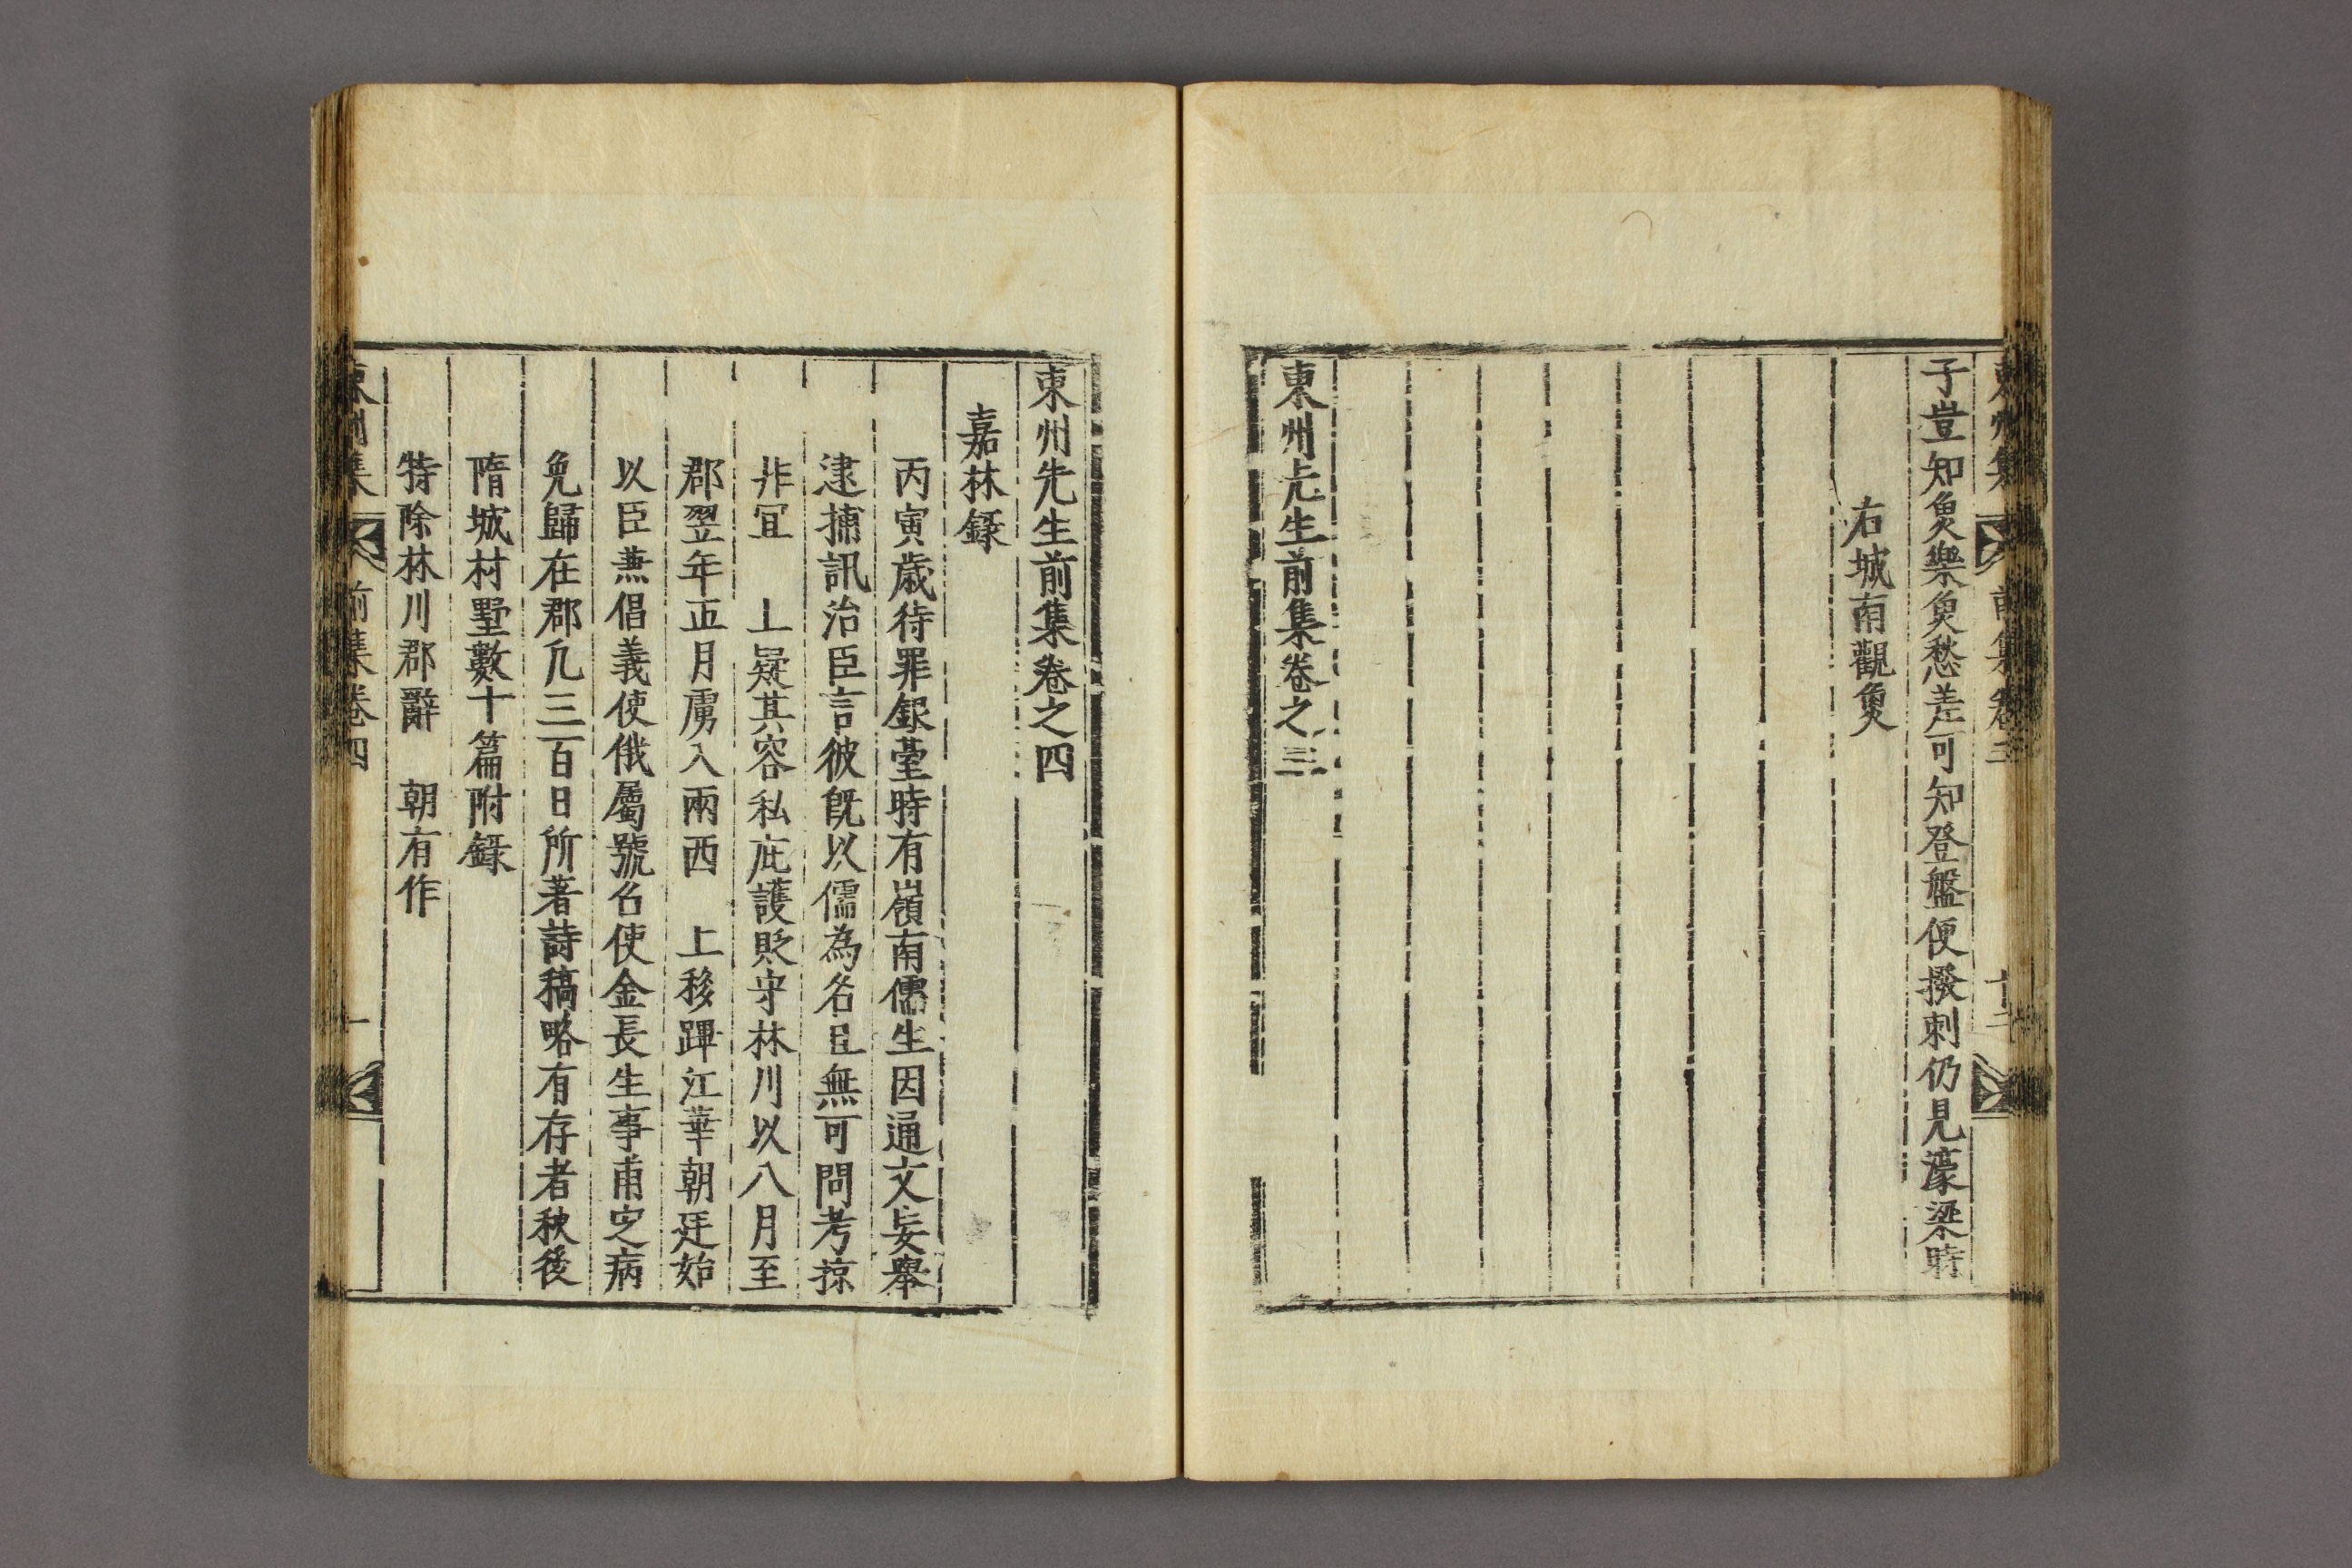 東州集 前集卷三 十二
子豈知魚樂魚愁差可知登盤便撥刺仍見濠梁時
右城南觀魚
東州先生前集卷之三
東州先生前集卷之四
嘉林錄
丙寅歲待罪銀臺時有嶺南儒生因通文妄舉
逮捕訊治臣言彼旣以儒為名臣無可問考掠
非冝 上疑其容私庇護貶守林川以八月至
郡翌年正月虜入兩西 上移蹕江華朝廷始
以臣兼倡義使俄屬號召使金長生事甫定病
免歸在郡凡三百日所著詩稿略有存者秋後
隋城村墅數十篇附錄
特除林川郡辭 朝有作
東州集 前集卷四 一